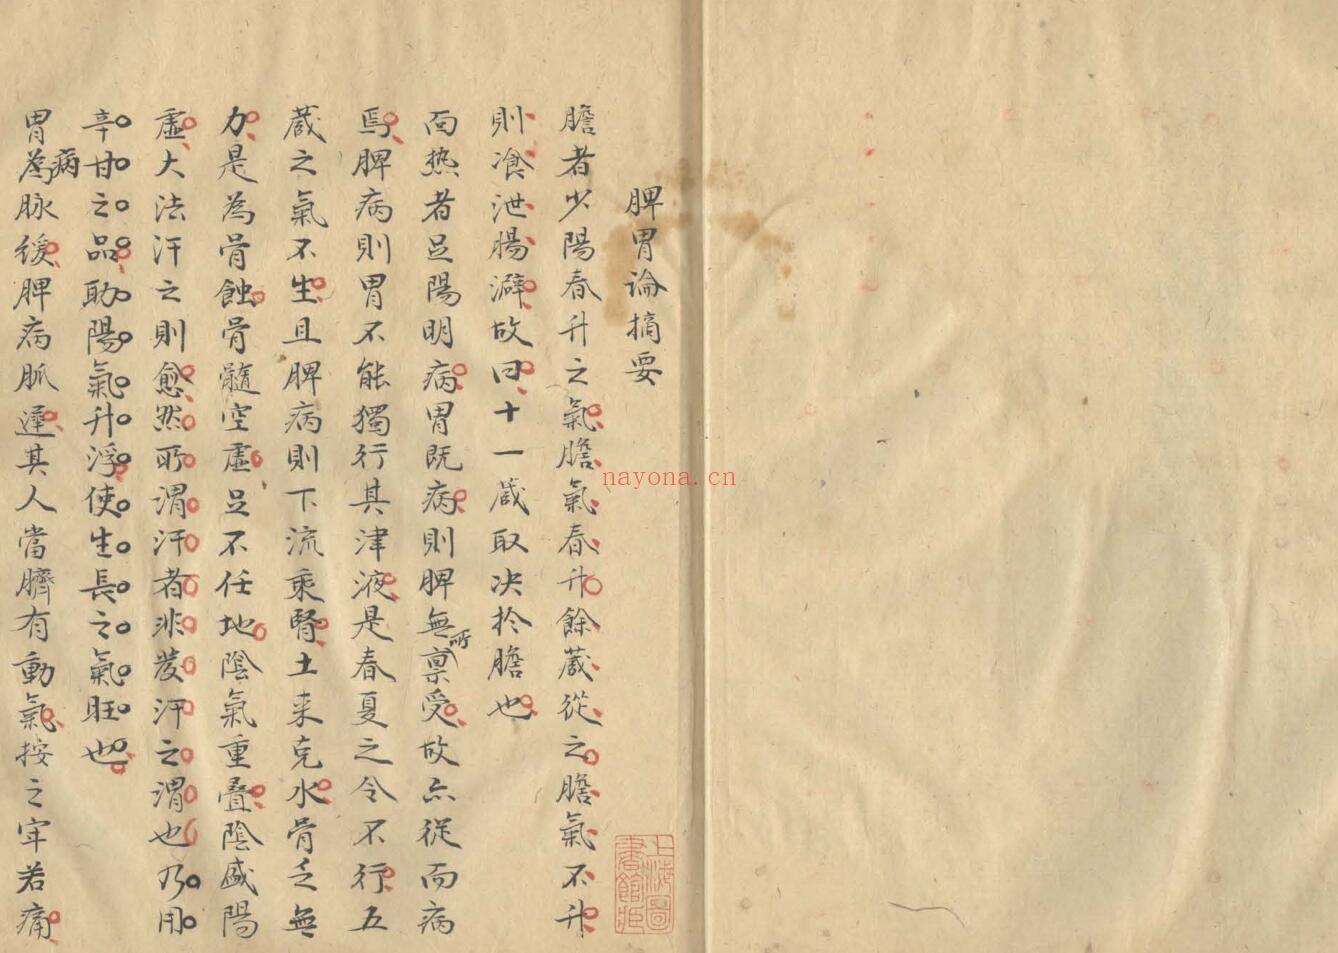 脾胃論摘要
膽者少陽春升之氣膽氣春升餘蔵從之膽氣不升
則飡泄腸澼故曰十一蔵取决於膽也
面热者足陽明病胃既病則脾無所禀受故亦從而病
焉脾病則胃不能獨行其津液是春夏之令不行五
蔵之氣不生且脾病則下流乘腎土来克水骨乏無
力是為骨蝕骨髓空虚足不任地陰氣重叠陰盛陽
虚大法汗之則愈然所謂汗者非發汗之謂也乃用
辛甘之品助陽氣升浮使生長之氣旺也
胃病為脉緩脾病脈遲其人當臍有動氣按之牢若痛
上海圖書館藏
nayona.cn